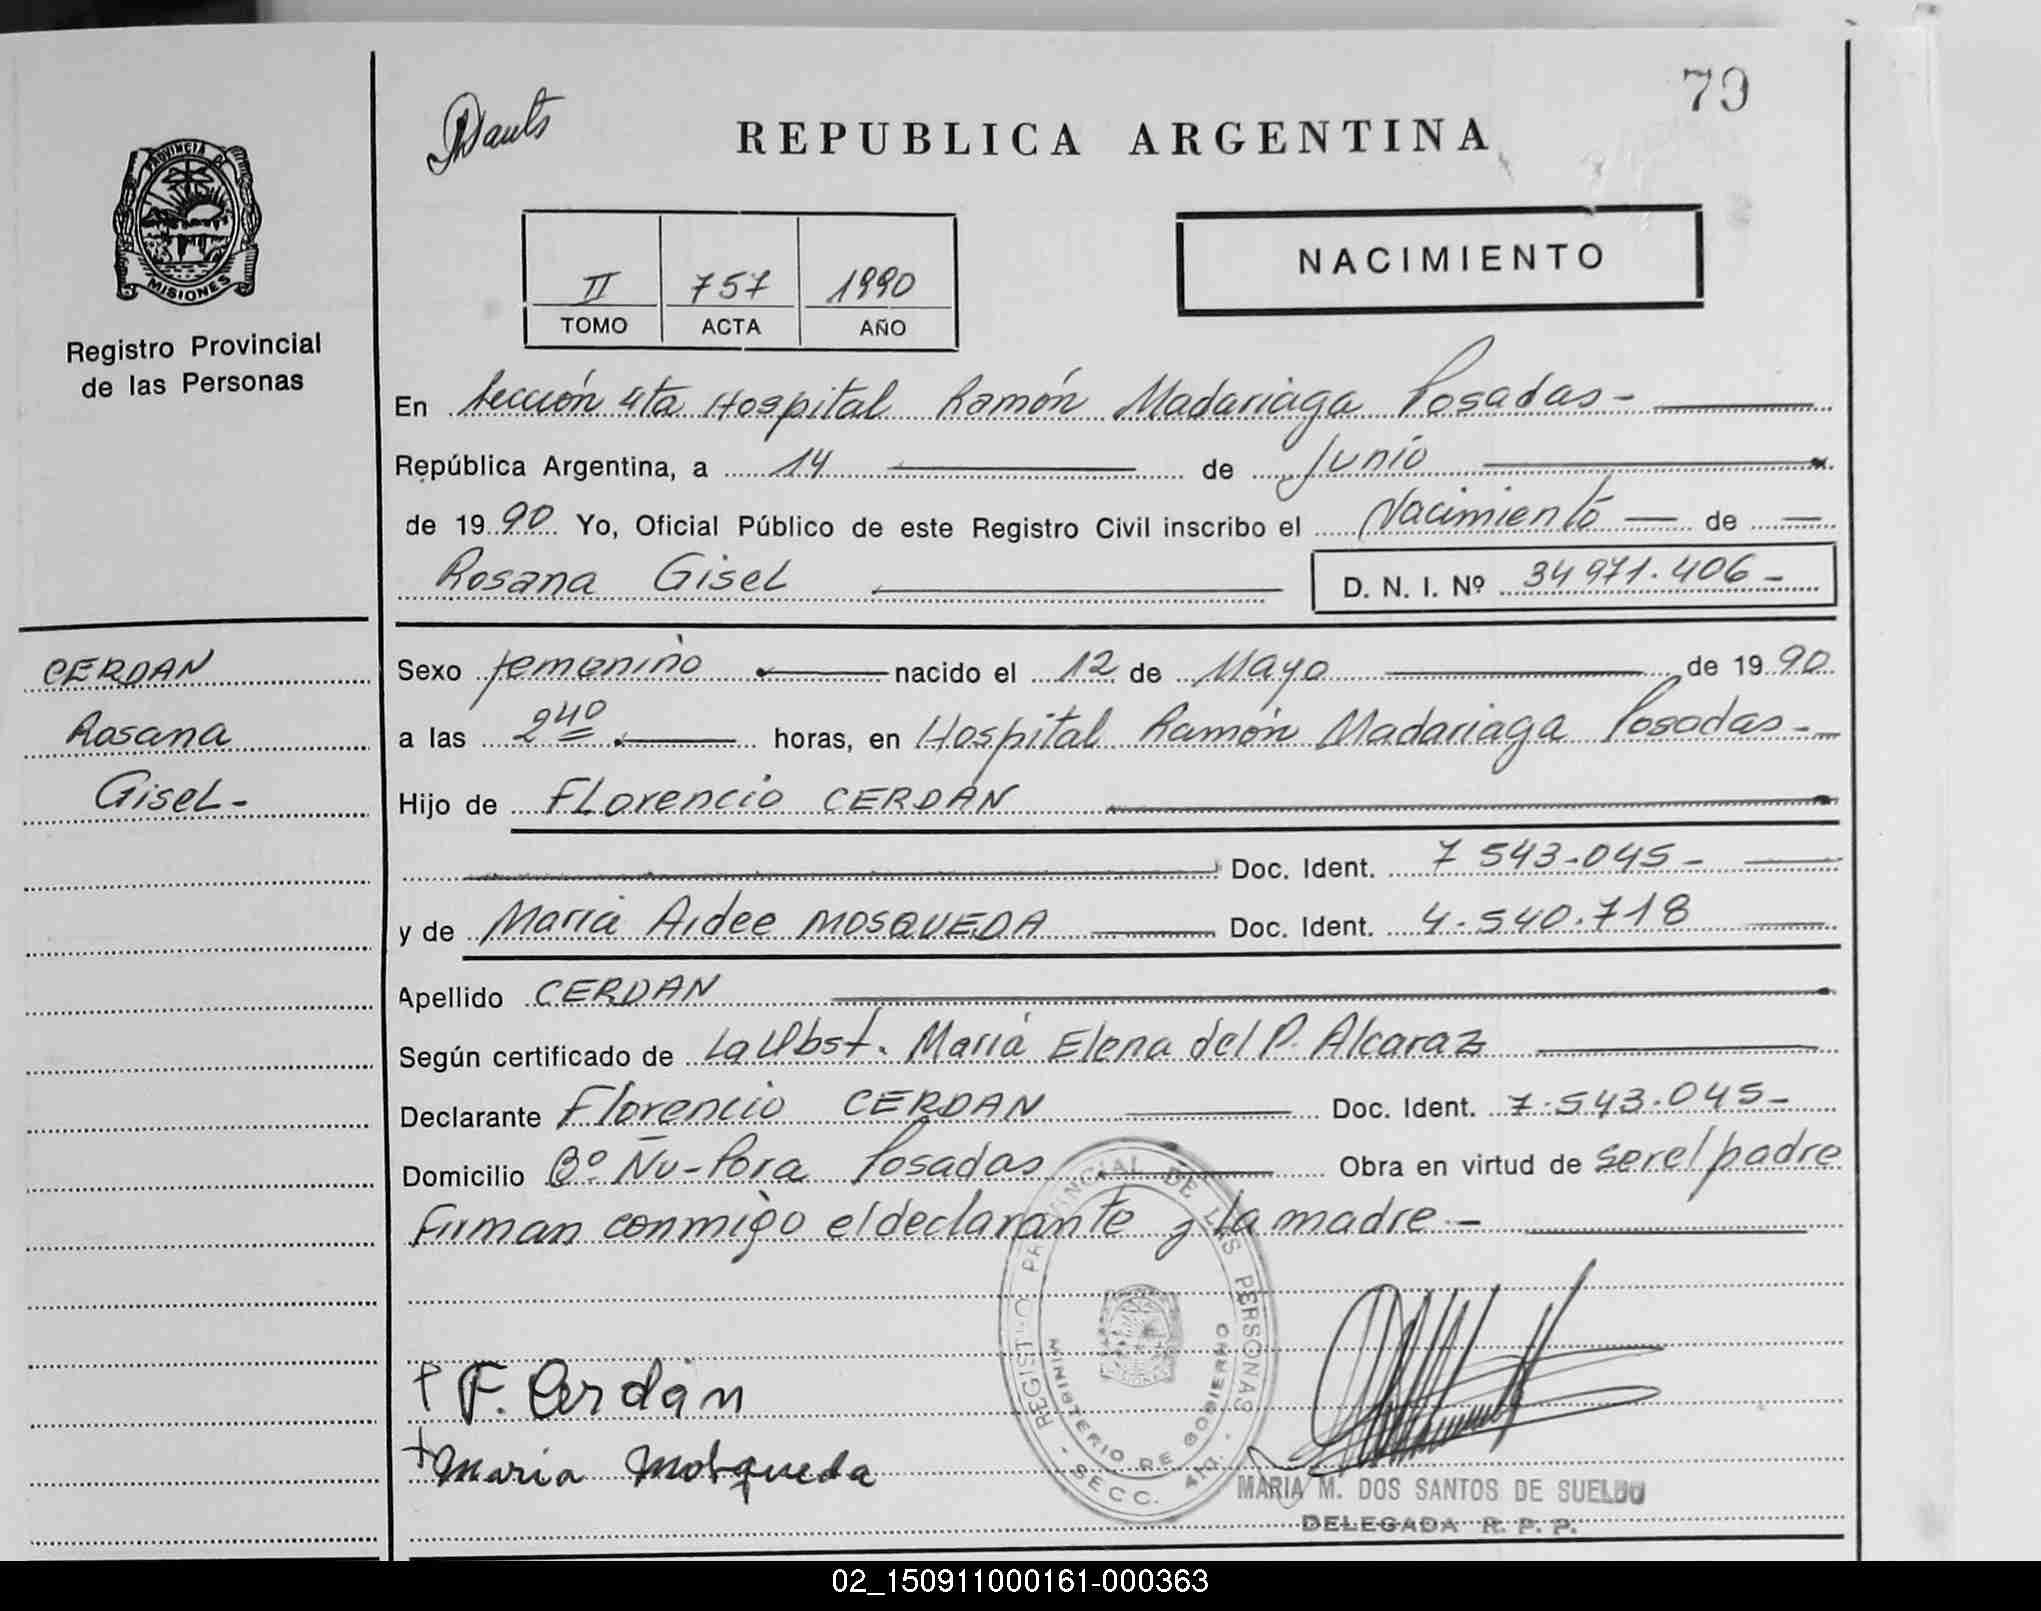 79
REPUBLICA ARGENTINA
PROVINCIA DE
MISIONES
Registro Provincial
de las Personas
NACIMIENTO
II 757 1990
TOMO ACTA AÑO
En Sección 4ta Hospital Ramón Madariaga Posadas -
República Argentina, a 14 de Junio
de 1990 Yo, Oficial Público de este Registro Civil inscribo el Nacimiento de
Rosana Gisel D. N. I. Nº 34 971.406 -
CERDAN
Rosana
Gisel -
Sexo femenino nacido el 12 de Mayo de 1990
a las 24º horas, en Hospital Ramón Madariaga Posadas -
Hijo de Florencio CERDAN
Doc. Ident. 7 543.045 -
y de María Aidee MOSQUEDA Doc. Ident. 4.540.718
Apellido CERDAN
Según certificado de La Obst. María Elena del P. Alcaraz
Declarante Florencio CERDAN Doc. Ident. 7.543.045 -
Domicilio Bº Ñu-Pora Posadas Obra en virtud de ser el padre
Firman conmigo el declarante y la madre -
REGISTRO PROVINCIAL DE LAS PERSONAS
MINISTERIO DE GOBIERNO
- SECC. 4ta. -
F. Cerdán
Maria Mosqueda
MARIA M. DOS SANTOS DE SUELDO
DELEGADA R. P. P.
02_150911000161-000363